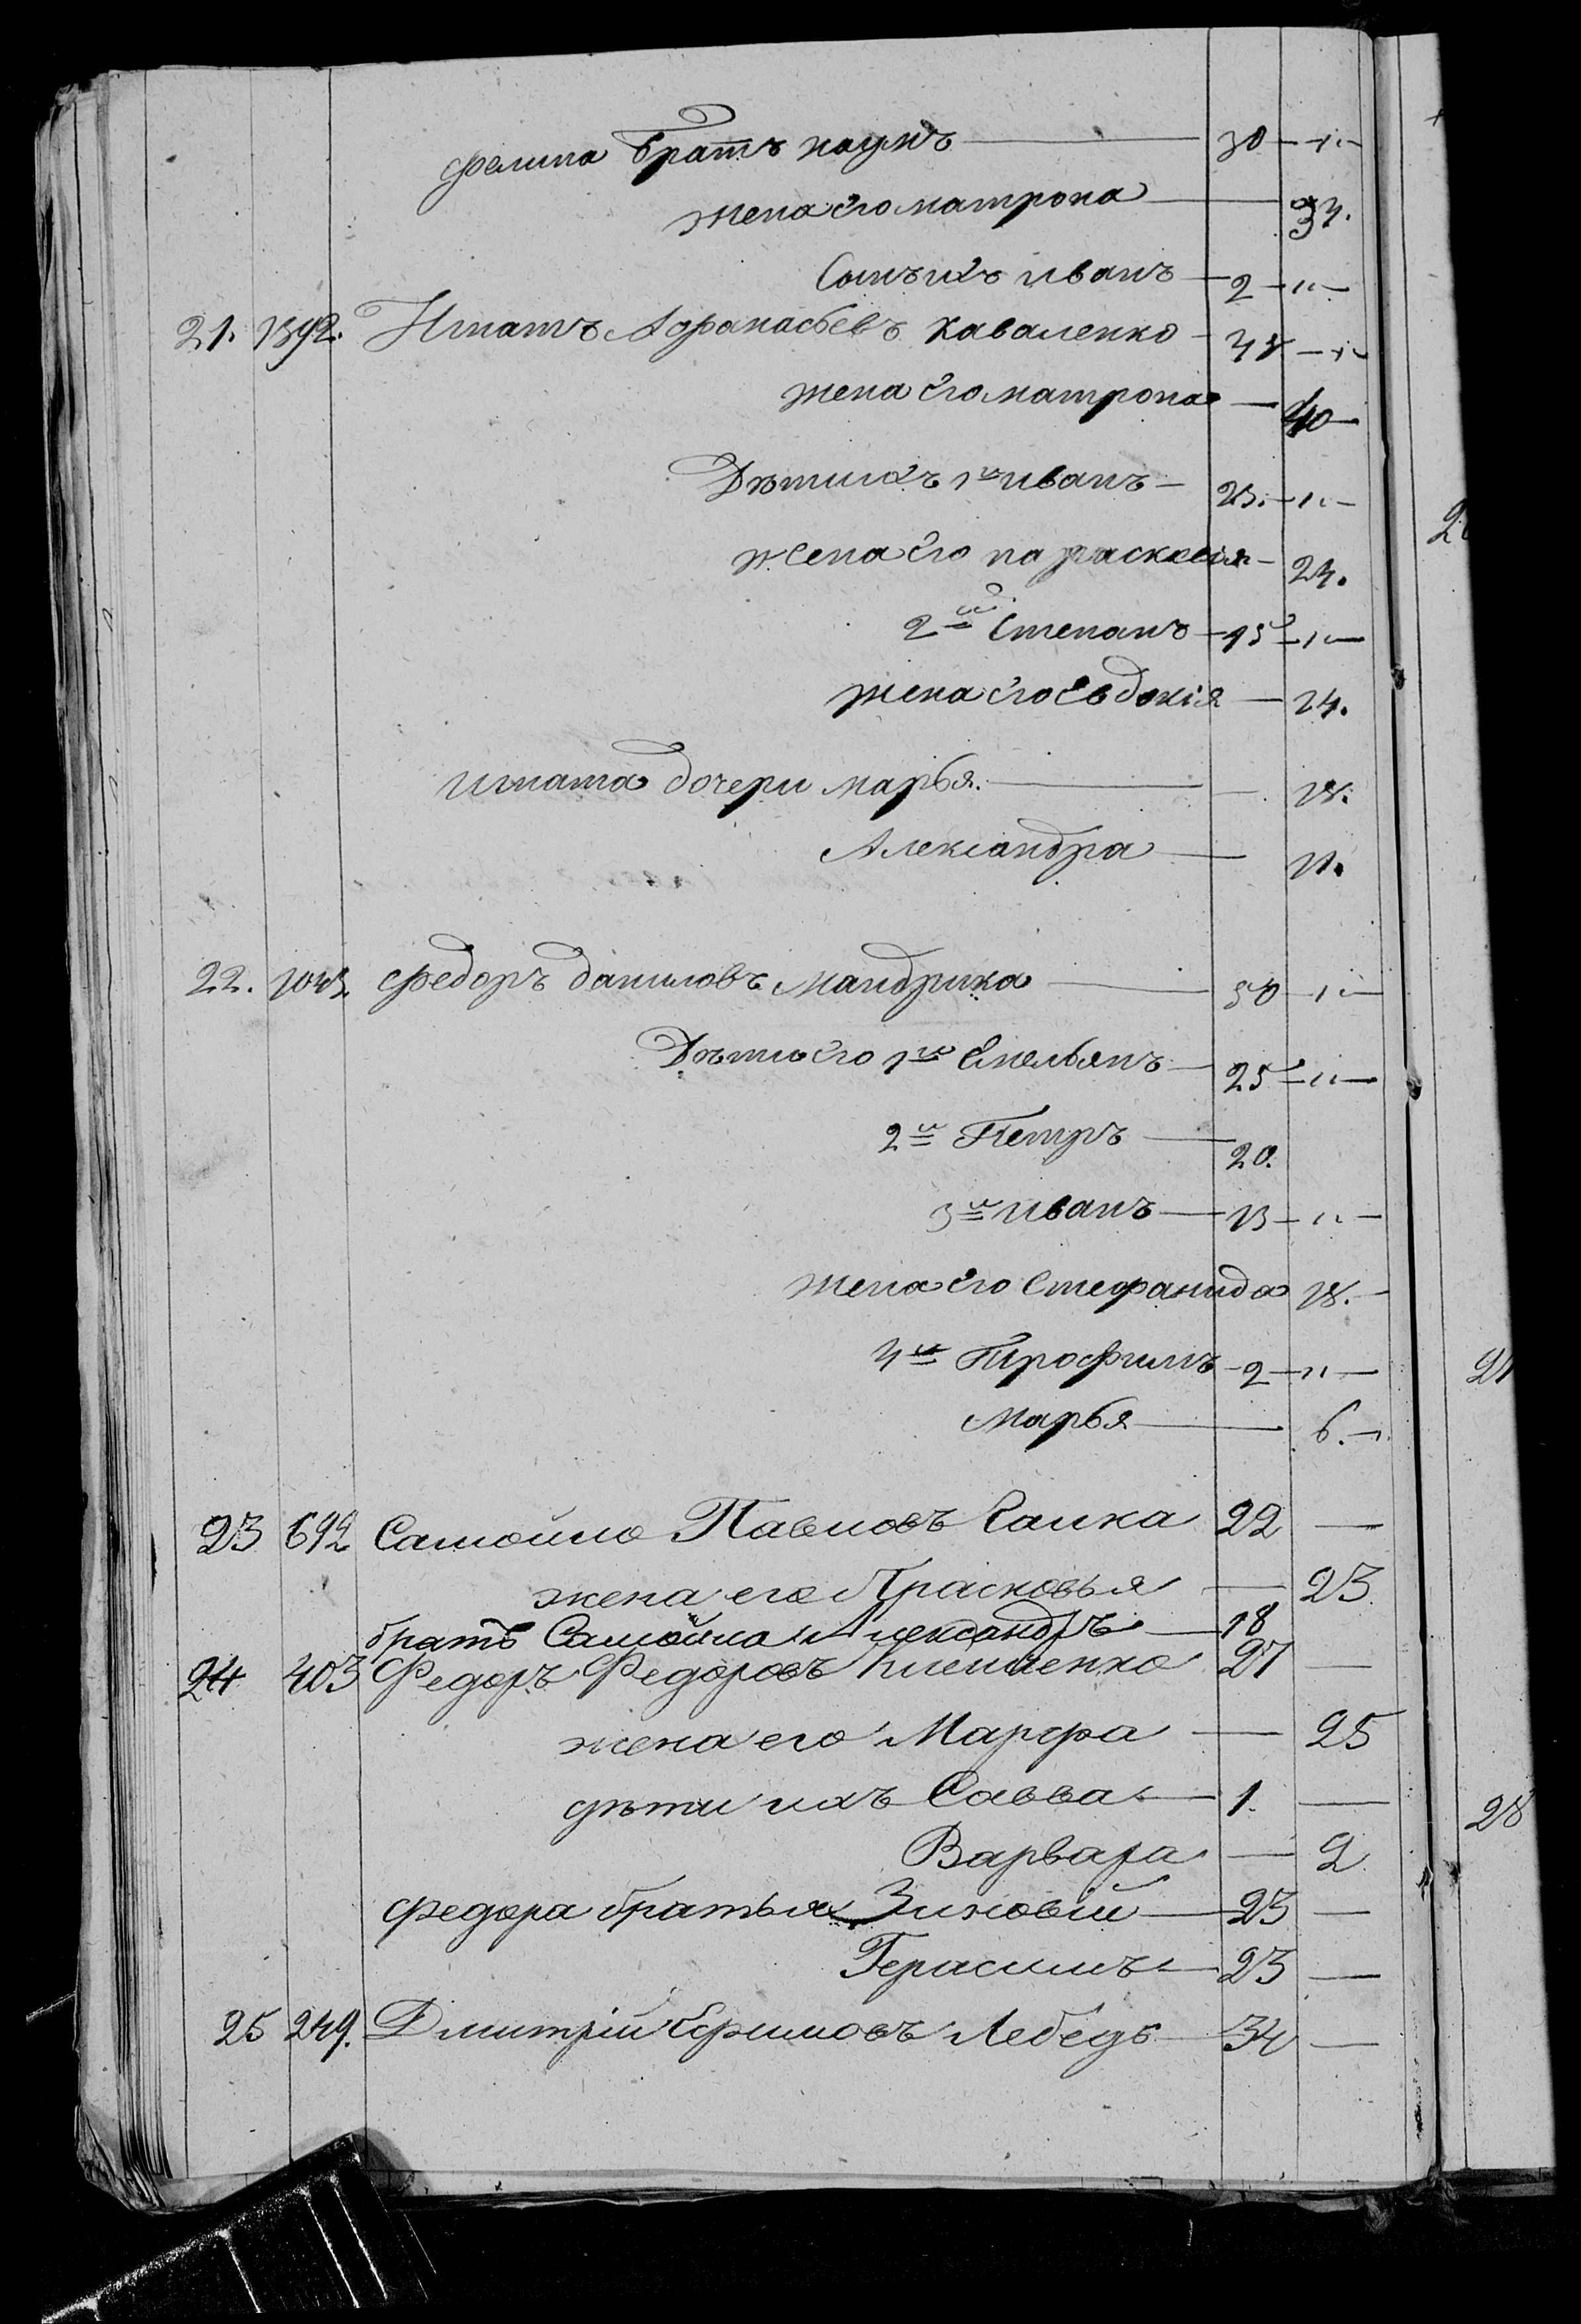 Фелипа Братъ наумъ 30
жена его матрона 34.
Сынъ ихъ иванъ 2
21. 1392. Игнатъ Афанасьевъ Каваленко 48
жена его матрона 40
Дѣти ихъ 1й иванъ 23.
жена его парасковія 24.
2й Степанъ 15
жена его Евдокія 24.
игната дочери марья. 18.
Александра 11.
22. Федоръ даниловъ Мандрика 50
Дѣти его 1й Емельянъ 25
2й Петръ 20.
3й иванъ 13
жена его Стефанида 18.
4й Трофимъ 2
Марья 6.
23 692 Самойло Павловъ Галка 22
жена его Прасковья 23
братъ Самойла Александръ 18
24 403 Федоръ Федоровъ Клеменко 27
жена его Марфа 25
дѣти ихъ Савва 1.
Варвара 2
Федора братья Зиновій 23
Герасимъ 23
25 249. Дмитрій Ефимовъ Лебедь 34
28